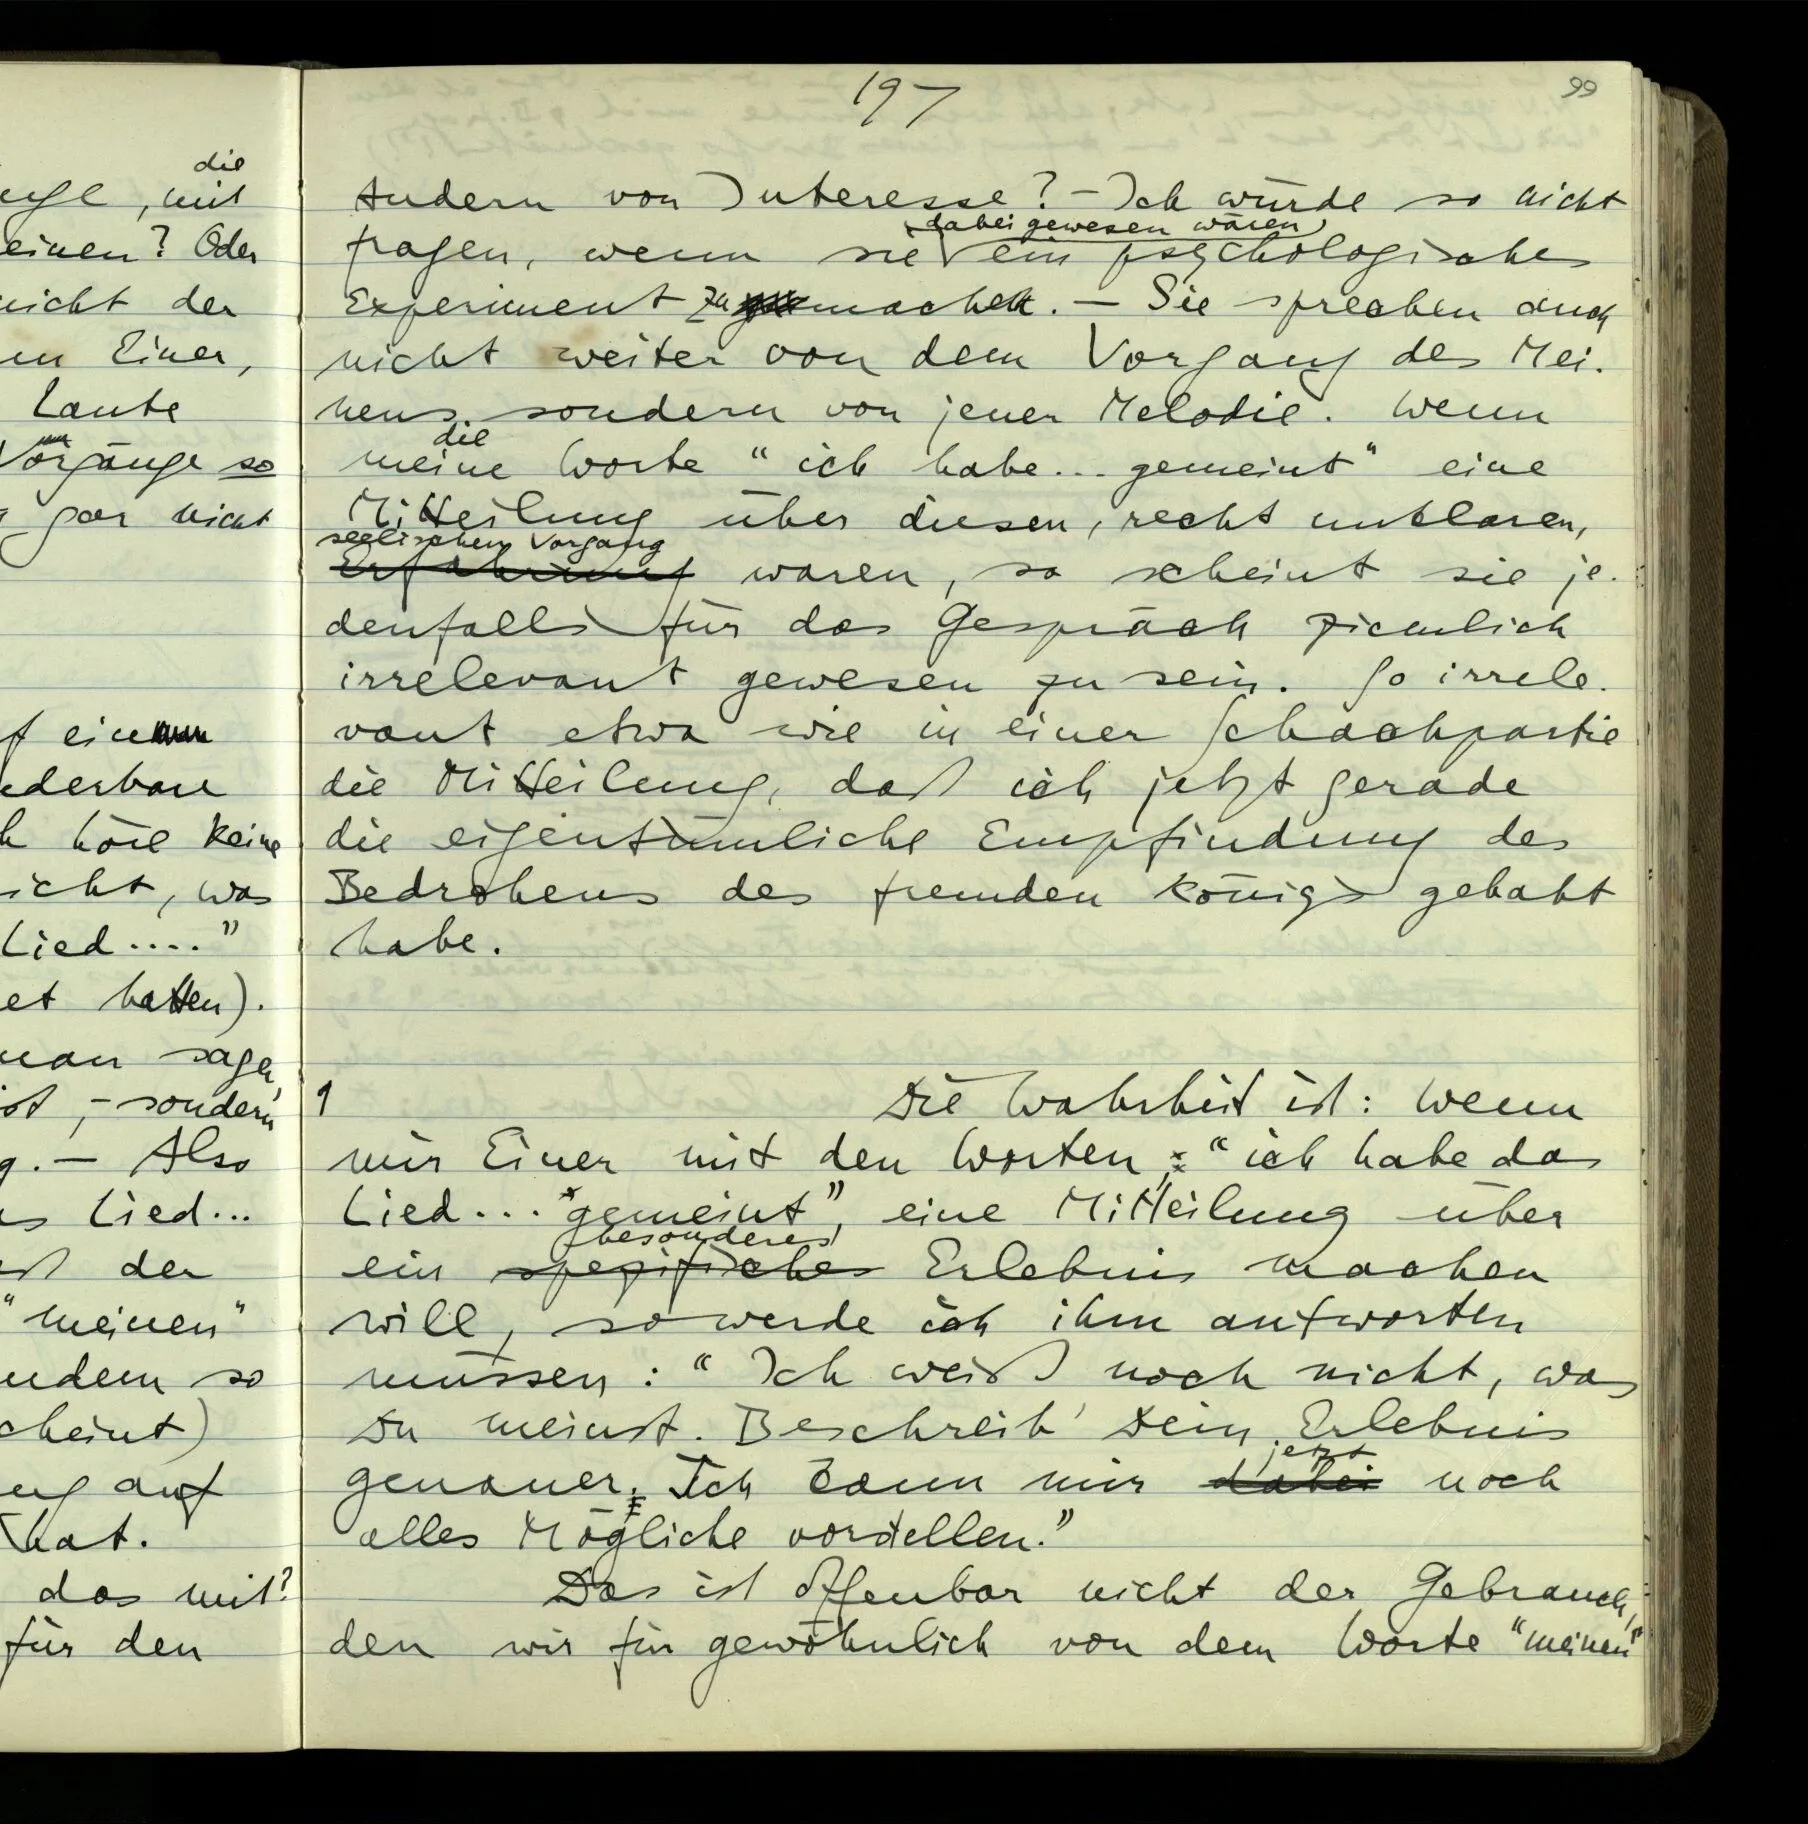 die
, mit
einen? Oder
nicht der
Einer,
Laute
Vorgänge so
gar nicht
einem
höre keine
nicht, was
Lied ...."
hatten).
man sagen,
ist, – sondern
.– Also
Lied...
der
"meinen"
so
scheint)
auf
hat.
das mit?
für den
197
99
Andern von Interesse? – Ich würde so nicht
dabei gewesen wären,
fragen, wenn sie ein psychologisches
Experiment zu machen. – Sie sprechen auch
nicht weiter von dem Vorgang des Mei-
nens, sondern von jener Melodie. Wenn
die
meine Worte "ich habe... gemeint" eine
Mitteilung über diesen, recht unklaren,
seelischen Vorgang
Erfahrung waren, so scheint sie je-
denfalls für das Gespräch ziemlich
irrelevant gewesen zu sein. So irrele-
vant etwa wie in einer Schachpartie
die Mitteilung, daß ich jetzt gerade
die eigentümliche Empfindung des
Bedrohens des fremden Königs gehabt
habe.
1 Die Wahrheit ist: Wenn
mir Einer mit den Worten: "ich habe das
Lied... gemeint", eine Mitteilung über
besonderes
ein spezifisches Erlebnis machen
will, so werde ich ihm antworten
müssen: "Ich weiß noch nicht, was
Du meinst. Beschreib' Dein Erlebnis
jetzt
genauer; Ich kann mir dabei noch
alles Mögliche vorstellen."
Das ist offenbar nicht der Gebrauch,
den wir für gewöhnlich von dem Worte "meinen"